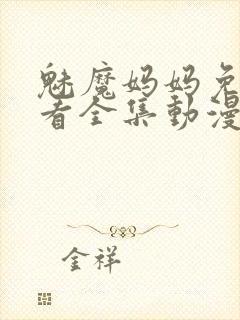 魅魔妈妈免
看全集動漫
金祥